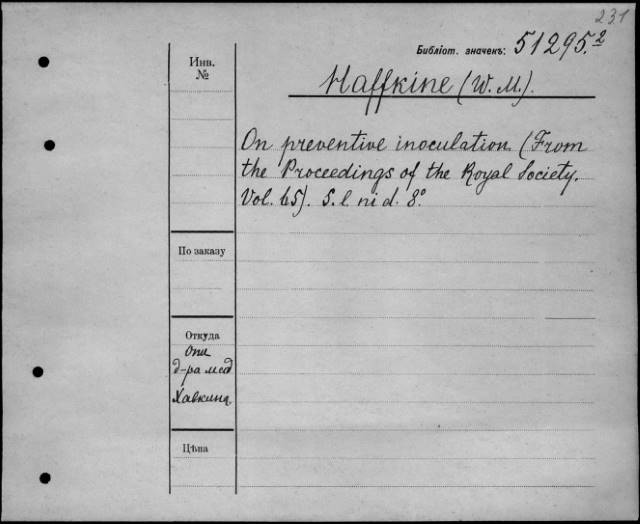 231
Библіот. значекъ: 51295.²
Инв. №
Haffkine (W. M.).
On preventive inoculation. (From
the Proceedings of the Royal Society.
Vol. 65). S. l. ni d. 8°.
По заказу
Откуда
д-ра мед
Хавкина
Цѣна